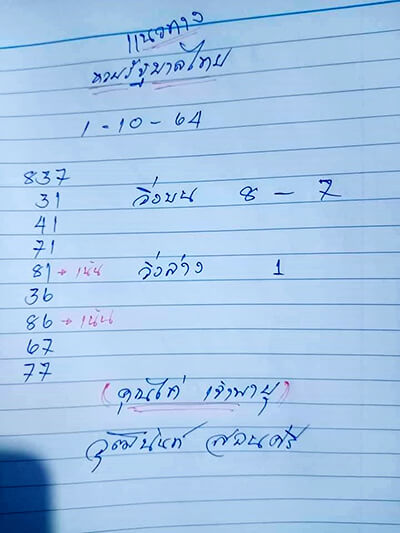 แนวทาง
หวยรัฐบาลไทย
1-10-64
837
31 วิ่งบน 8 - 7
41
71
81 → เน้น วิ่งล่าง 1
36
86 → เน้น
67
77
(คุณไก่ เจ้าพายุ)
วุฒินันท์ สอนศรี